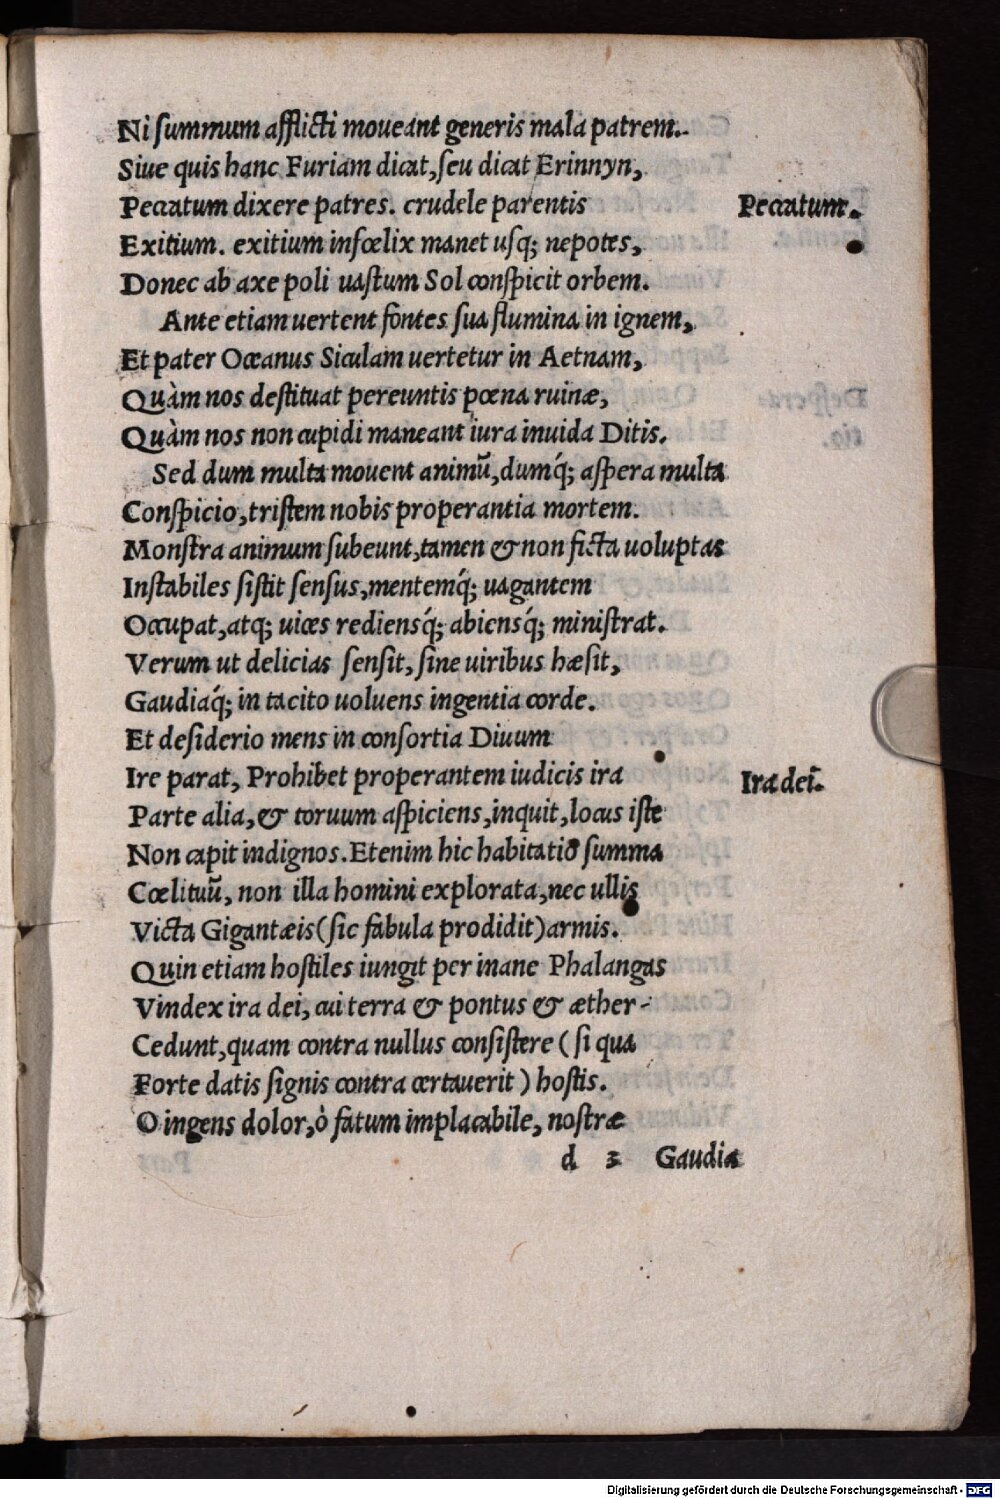 Ni ſummum afflicti moueant generis mala patrem.
Siue quis hanc Furiam dicat, ſeu dicat Erinnyn,
Peccatum dixere patres. crudele parentis
Peccatum.
Exitium. exitium infœlix manet uſq; nepotes,
Donec ab axe poli uaſtum Sol conſpicit orbem.
Ante etiam uertent fontes ſua flumina in ignem,
Et pater Oceanus Siculam uertetur in Aetnam,
Quàm nos deſtituat pereuntis pœna ruinæ,
Quàm nos non cupidi maneant iura inuida Ditis.
Sed dum multa mouent animū, dumq́; aſpera multa
Conſpicio, triſtem nobis properantia mortem.
Monſtra animum ſubeunt, tamen & non ficta uoluptas
Inſtabiles ſiſtit ſenſus, mentemq́; uagantem
Occupat, atq; uices rediensq́; abiensq́; miniſtrat.
Verum ut delicias ſenſit, ſine uiribus hæſit,
Gaudiaq́; in tacito uoluens ingentia corde.
Et deſiderio mens in conſortia Diuum
Ire parat, Prohibet properantem iudicis ira
Ira dei.
Parte alia, & toruum aſpiciens, inquit, locus iſte
Non capit indignos. Etenim hic habitatio ſumma
Cœlituū, non illa homini explorata, nec ullis
Victa Gigantæis (ſic fabula prodidit) armis.
Quin etiam hoſtiles iungit per inane Phalangas
Vindex ira dei, cui terra & pontus & æther
Cedunt, quam contra nullus conſiſtere (ſi qua
Forte datis ſignis contra certauerit) hoſtis.
O ingens dolor, ò fatum implacabile, noſtræ
d 3 Gaudia
Digitalisierung gefördert durch die Deutsche Forschungsgemeinschaft - DFG